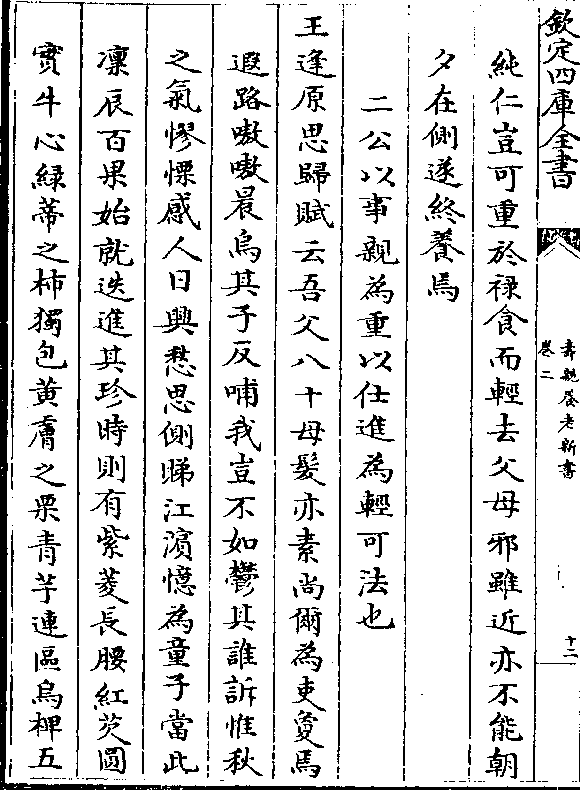 欽定四庫全書
壽親養老新書
卷二
十二
純仁豈可重於祿食而輕去父母邪雖近亦不能朝
夕在側遂終養焉
二公以事親為重以仕進為輕可法也
王逢原思歸賦云吾父八十母髮亦素尚爾為吏敻焉
遐路嗷嗷晨烏其子反哺我豈不如鬱其誰訴惟秋
之氣慘慄感人日興愁思側睇江濵憶為童子當此
凜辰百果始就迭進其珍時則有紫菱長腰紅芡圓
實牛心綠蒂之柿獨包黃膚之栗青芋連區烏椑五